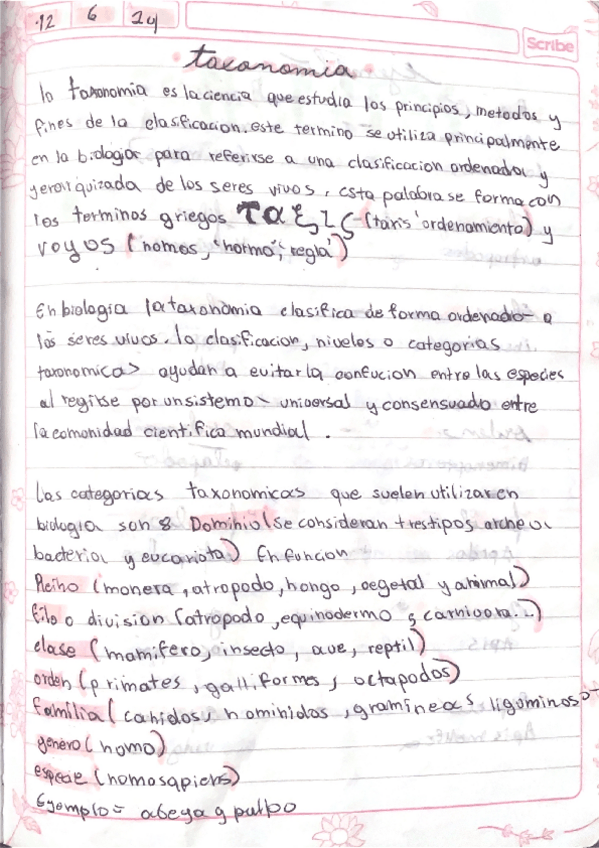 12 6 24
Scribe
taxonomia
la taxonomia es la ciencia que estudia los principios, metodos y
fines de la clasificacion. este termino se utiliza principalmente
en la biologia para referirse a una clasificacion ordenada y
jerarquizada de los seres vivos, esta palabra se forma con
los terminos griegos ταξις (taxis 'ordenamiento') y
voyos (nomos, 'norma', regla')
En biologia la taxonomia clasifica de forma ordenada a
los seres vivos. la clasificacion, niveles o categorias
taxonomicas ayudan a evitar la confucion entre las especies
al regirse por un sistema universal y consensuado entre
la comunidad cientifica mundial.
Las categorias taxonomicas que suelen utilizar en
biologia son 8 Dominio (se consideran tres tipos archea
bacteria y eucariota) En funcion
Reino (monera, atropodo, hongo, vegetal y animal)
filo o division (atropodo, equinodermo y carnivora...)
clase (mamifero, insecto, ave, reptil)
orden (primates, galliformes, octapodos)
familia (canidos, hominidos, gramineas liguminosa
genero (homo)
especie (homosapiens)
Ejemplo= abeja y pulpo